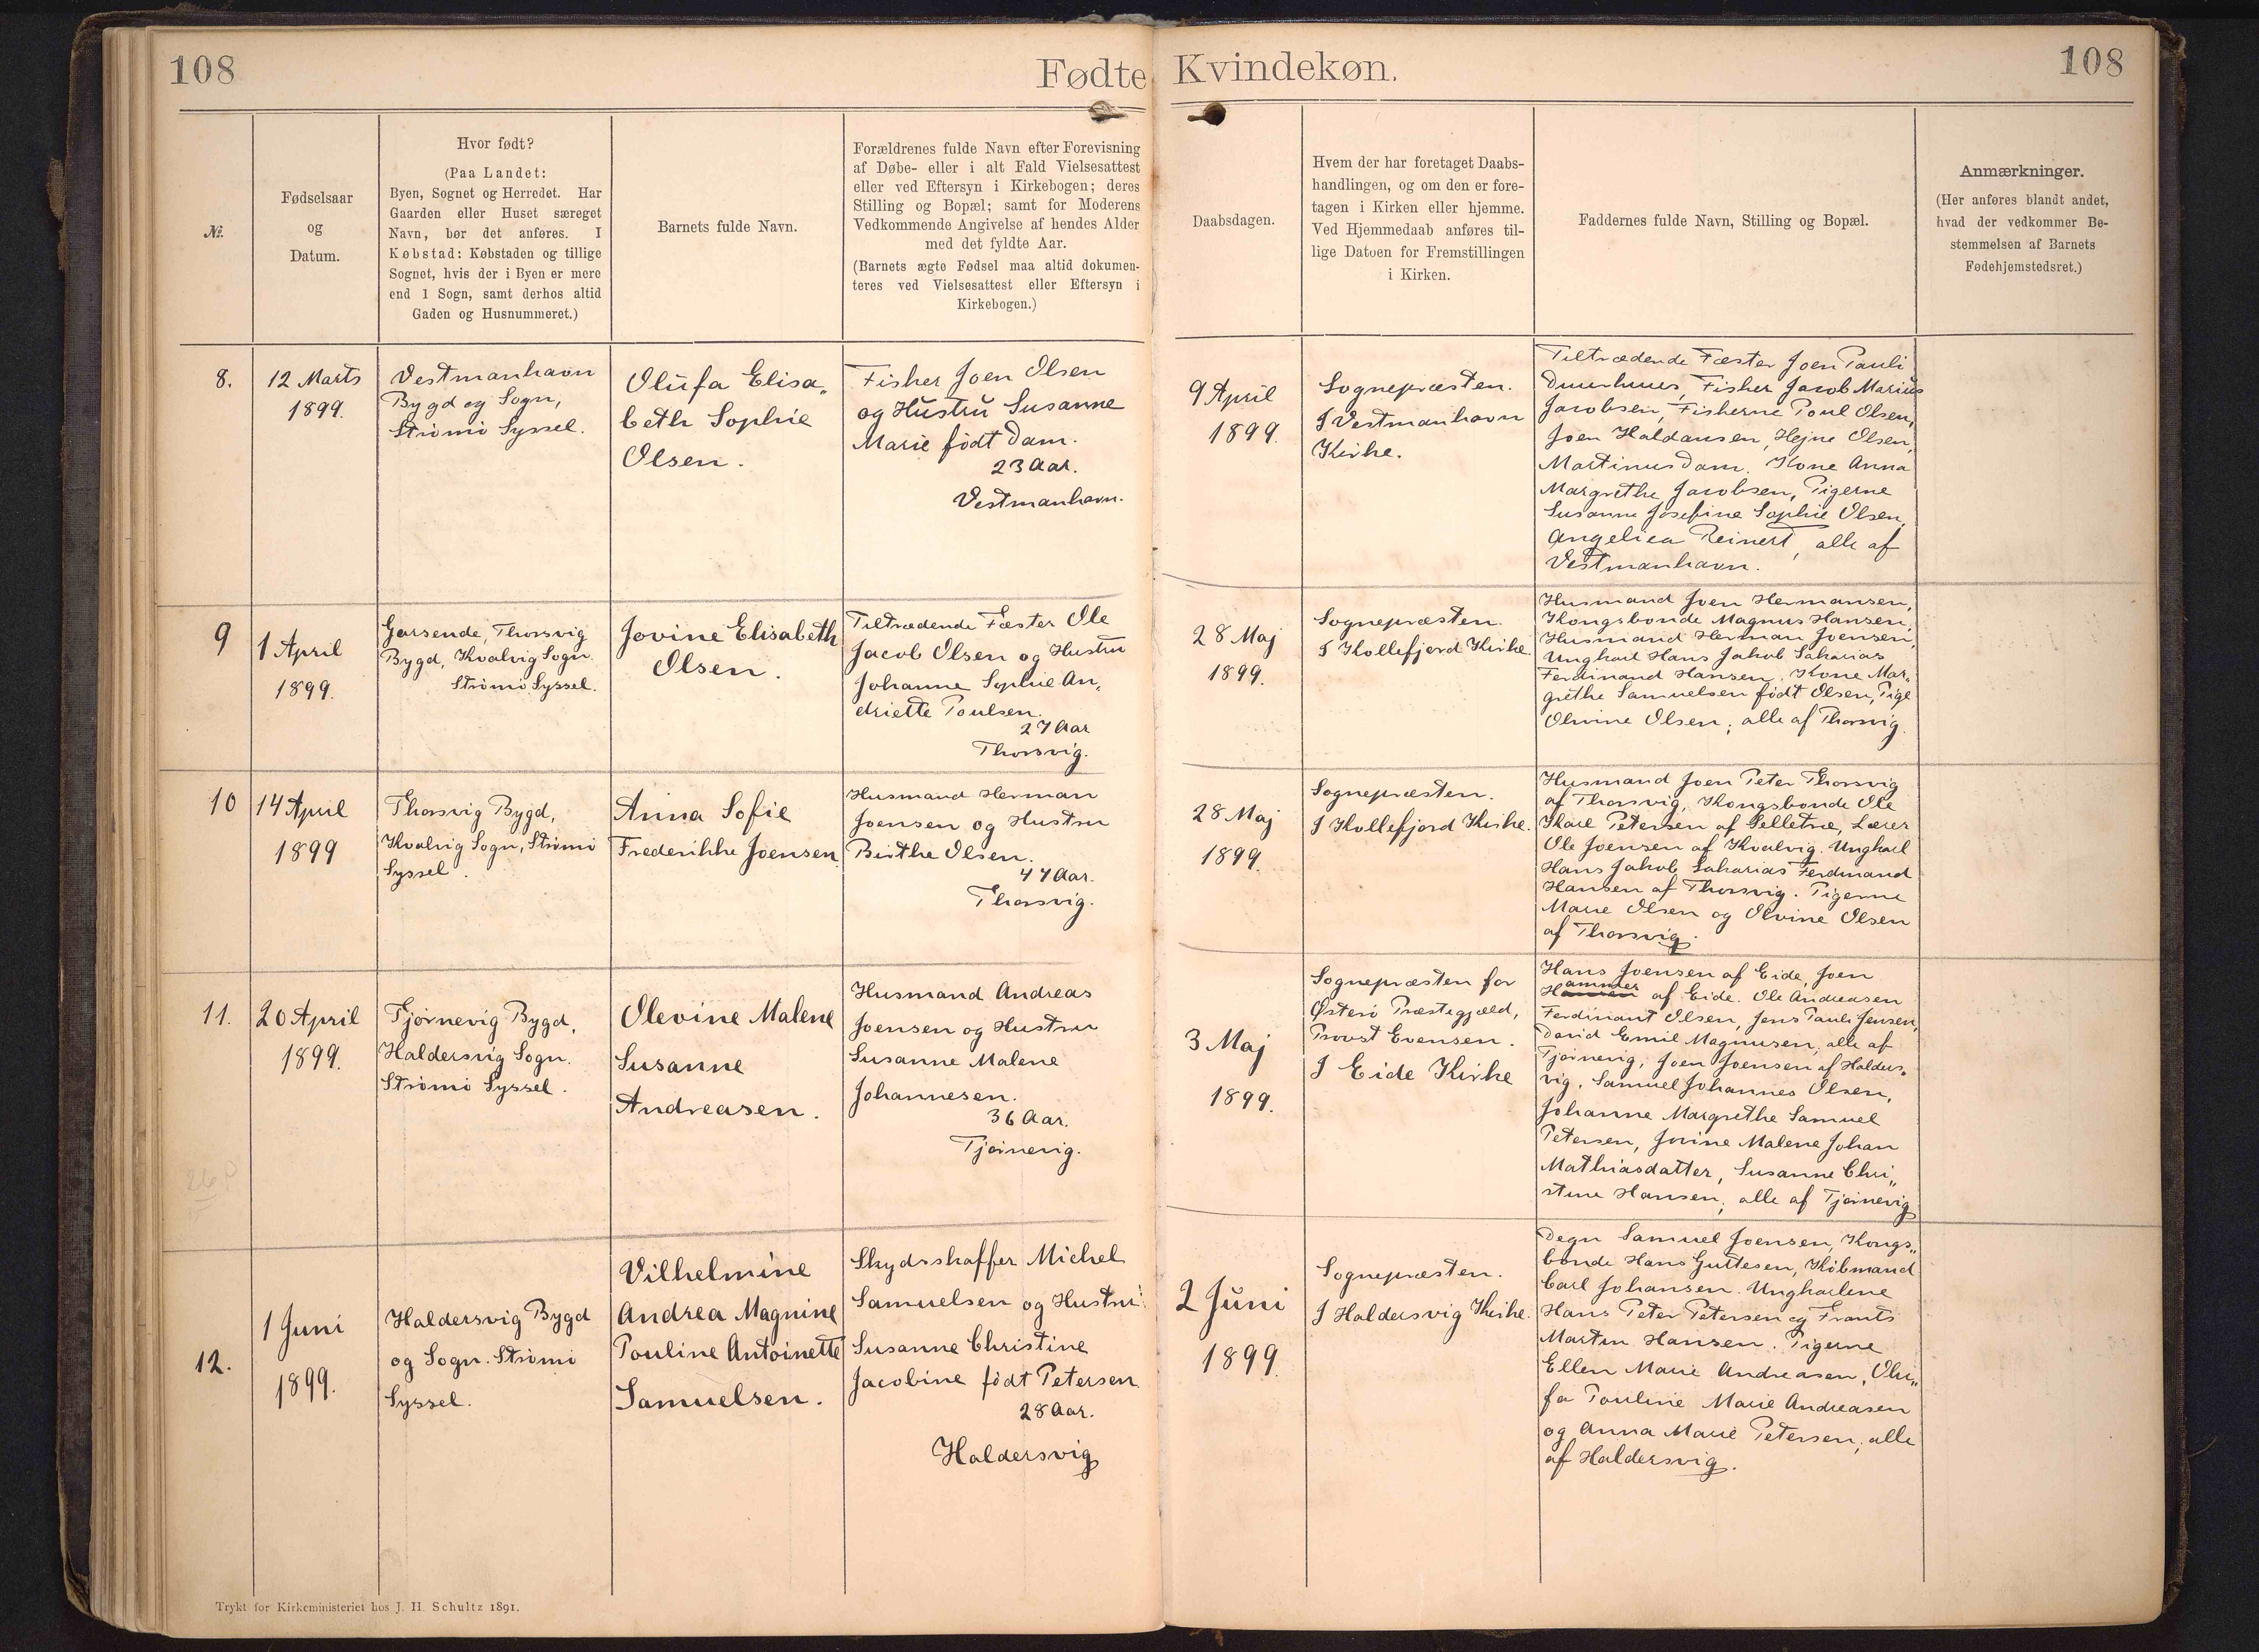 108
Fødte
Kvindekøn.
108
№
Fødselsaar
og
Datum.
Hvor født?
(Paa Landet:
Byen, Sognet og Herredet. Har
Gaarden eller Huset særeget
Navn, bør det anføres. I
Købstad: Købstaden og tillige
Sognet, hvis der i Byen er mere
end 1 Sogn, samt derhos altid
Gaden og Husnummeret.)
Barnets fulde Navn.
Forældrenes fulde Navn efter Forevisning
af Døbe- eller i alt Fald Vielsesattest
eller ved Eftersyn i Kirkebogen; deres
Stilling og Bopæl; samt for Moderens
Vedkommende Angivelse af hendes Alder
med det fyldte Aar.
(Barnets ægte Fødsel maa altid dokumen-
teres ved Vielsesattest eller Eftersyn i
Kirkebogen.)
Daabsdagen.
Hvem der har foretaget Daabs-
handlingen, og om den er fore-
tagen i Kirken eller hjemme.
Ved Hjemmedaab anføres til-
lige Datoen for Fremstillingen
i Kirken.
Faddernes fulde Navn, Stilling og Bopæl.
Anmærkninger.
(Her anføres blandt andet,
hvad der vedkommer Be-
stemmelsen af Barnets
Fødehjemstedsret.)
8.
12 Marts
1899.
Vestmanhavn
Bygd og Sogn,
Strömö Syssel.
Olufa Elisa„
beth Sophie
Olsen.
Fisher Joen Olsen
og Hustru Susanne
Marie födt Dam.
23 Aar.
Vestmanhavn.
9 April
1899.
Sognepræsten.
I Vestmanhavn
Kirke.
Tiltrædende Fæster Joen Pauli
Duurhuus, Fisher Jacob Marius
Jacobsen, Fisherne Poul Olsen,
Joen Haldansen, Hejne Olsen,
Martinus Dam. Kone Anna
Margrethe Jacobsen, Pigerne
Susanne Josefine Sophie Olsen,
Angelica Reinert, alle af
Vestmanhavn.
9
1 April
1899.
Garsende, Thorsvig
Bygd, Kvalvig Sogn
Strömö Syssel.
Jovine Elisabeth
Olsen.
Tiltrædende Fæster Ole
Jacob Olsen og Hustru
Johanne Sophie An„
driette Poulsen.
27 Aar
Thorsvig.
28 Maj
1899.
Sognepræsten.
I Kollefjord Kirke.
Husmand Joen Hermansen,
Kongsbonde Magnus Hansen,
Husmand Herman Joensen,
Ungkarl Hans Jakob Saharias
Ferdinand Hansen. Kone Mar„
grethe Samuelsen födt Olsen, Pige
Olivine Olsen; alle af Thorsvig.
10
14 April
1899
Thorsvig Bygd,
Kvalvig Sogn, Strömö
Syssel.
Anna Sofie
Frederikke Joensen
Husmand Herman
Joensen og Hustru
Birthe Olsen.
44 Aar.
Thorsvig.
28 Maj
1899.
Sognepræsten.
I Kollefjord Kirke.
Husmand Joen Peter Thorsvig
af Thorsvig, Kongsbonde Ole
Karl Petersen af Selletræ, Lærer
Ole Joensen af Kvalvig. Ungkarl
Hans Jakob Saharias Ferdinand
Hansen af Thorsvig. Pigerne
Marie Olsen og Olvine Olsen
af Thorsvig.
11.
20 April
1899.
Tjörnevig Bygd,
Haldersvig Sogn.
Strömö Syssel.
Olevine Malene
Susanne
Andreasen.
Husmand Andreas
Joensen og Hustru
Susanne Malene
Johannesen.
36 Aar.
Tjörnevig.
3 Maj
1899.
Sognepræsten for
Österö Præstegjæld,
Provst Evensen.
I Eide Kirke
Hans Joensen af Eide, Joen
Hammer af Eide. Ole Andreasen
Ferdinant Olsen, Jens Pauli Jensen,
David Emil Magnusen, alle af
Tjörnevig; Joen Joensen af Halders„
vig. Samuel Johannes Olsen,
Johanne Margrethe Samuel
Petersen, Jovine Malene Johan
Mathiasdatter, Susanne Chri„
stine Hansen, alle af Tjörnevig
12.
1 Juni
1899.
Haldersvig Bygd
og Sogn. Strömö
Syssel.
Vilhelmine
Andrea Magnine
Pouline Antoinette
Samuelsen.
Skydsskaffer Michel
Samuelsen og Hustru
Susanne Christine
Jacobine födt Petersen
28 Aar.
Haldersvig
2 Juni
1899
Sognepræsten.
I Haldersvig Kirke.
Degn Samuel Joensen, Kongs„
bonde Hans Guttesen, Köbmand
Carl Johansen. Ungkarlene
Hans Peter Petersen og Frants
Martin Hansen. Pigerne
Ellen Marie Andreasen, Olu„
fa Pouline Marie Andreasen
og Anna Marie Petersen, alle
af Haldersvig.
Trykt for Kirkeministeriet hos J. H. Schultz 1891.